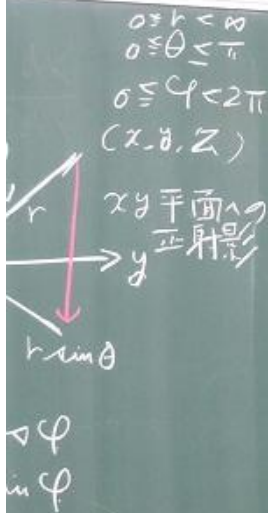 0≦r<∞
0≦θ≦π
0≦φ<2π
(x,y,z)
r
xy平面への
正射影
y
r sinθ
φ
in φ